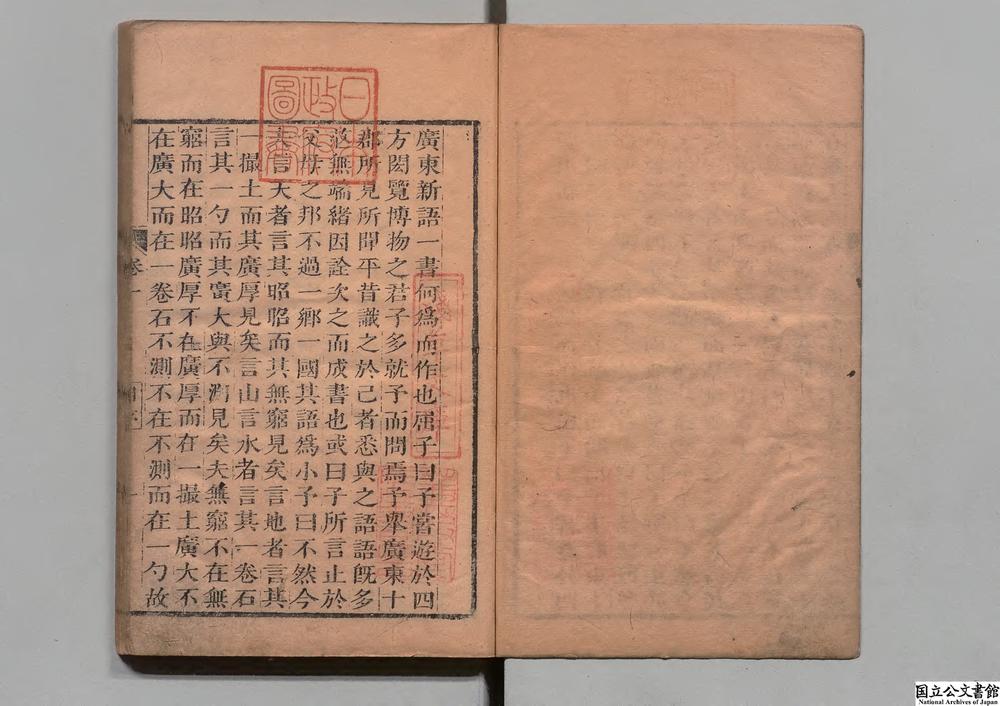 廣東新語一書何爲而作也屈子曰予嘗遊於四
方閎覽博物之君子多就予而問焉予舉廣東十
郡所見所聞平昔識之於己者悉與之語語旣多
茫無端緒因詮次之而成書也或曰子所言止於
父母之邦不過一鄉一國其語爲小予曰不然今
夫言天者言其昭昭而其無窮見矣言地者言其
一撮土而其廣厚見矣言山言水者言其一卷石
言其一勺而其廣大與不測見矣夫無窮不在無
窮而在昭昭廣厚不在廣厚而在一撮土廣大不
在廣大而在一卷石不測不在不測而在一勺故
卷一
一
日本
政府
圖書
国立公文書館
National Archives of Japan